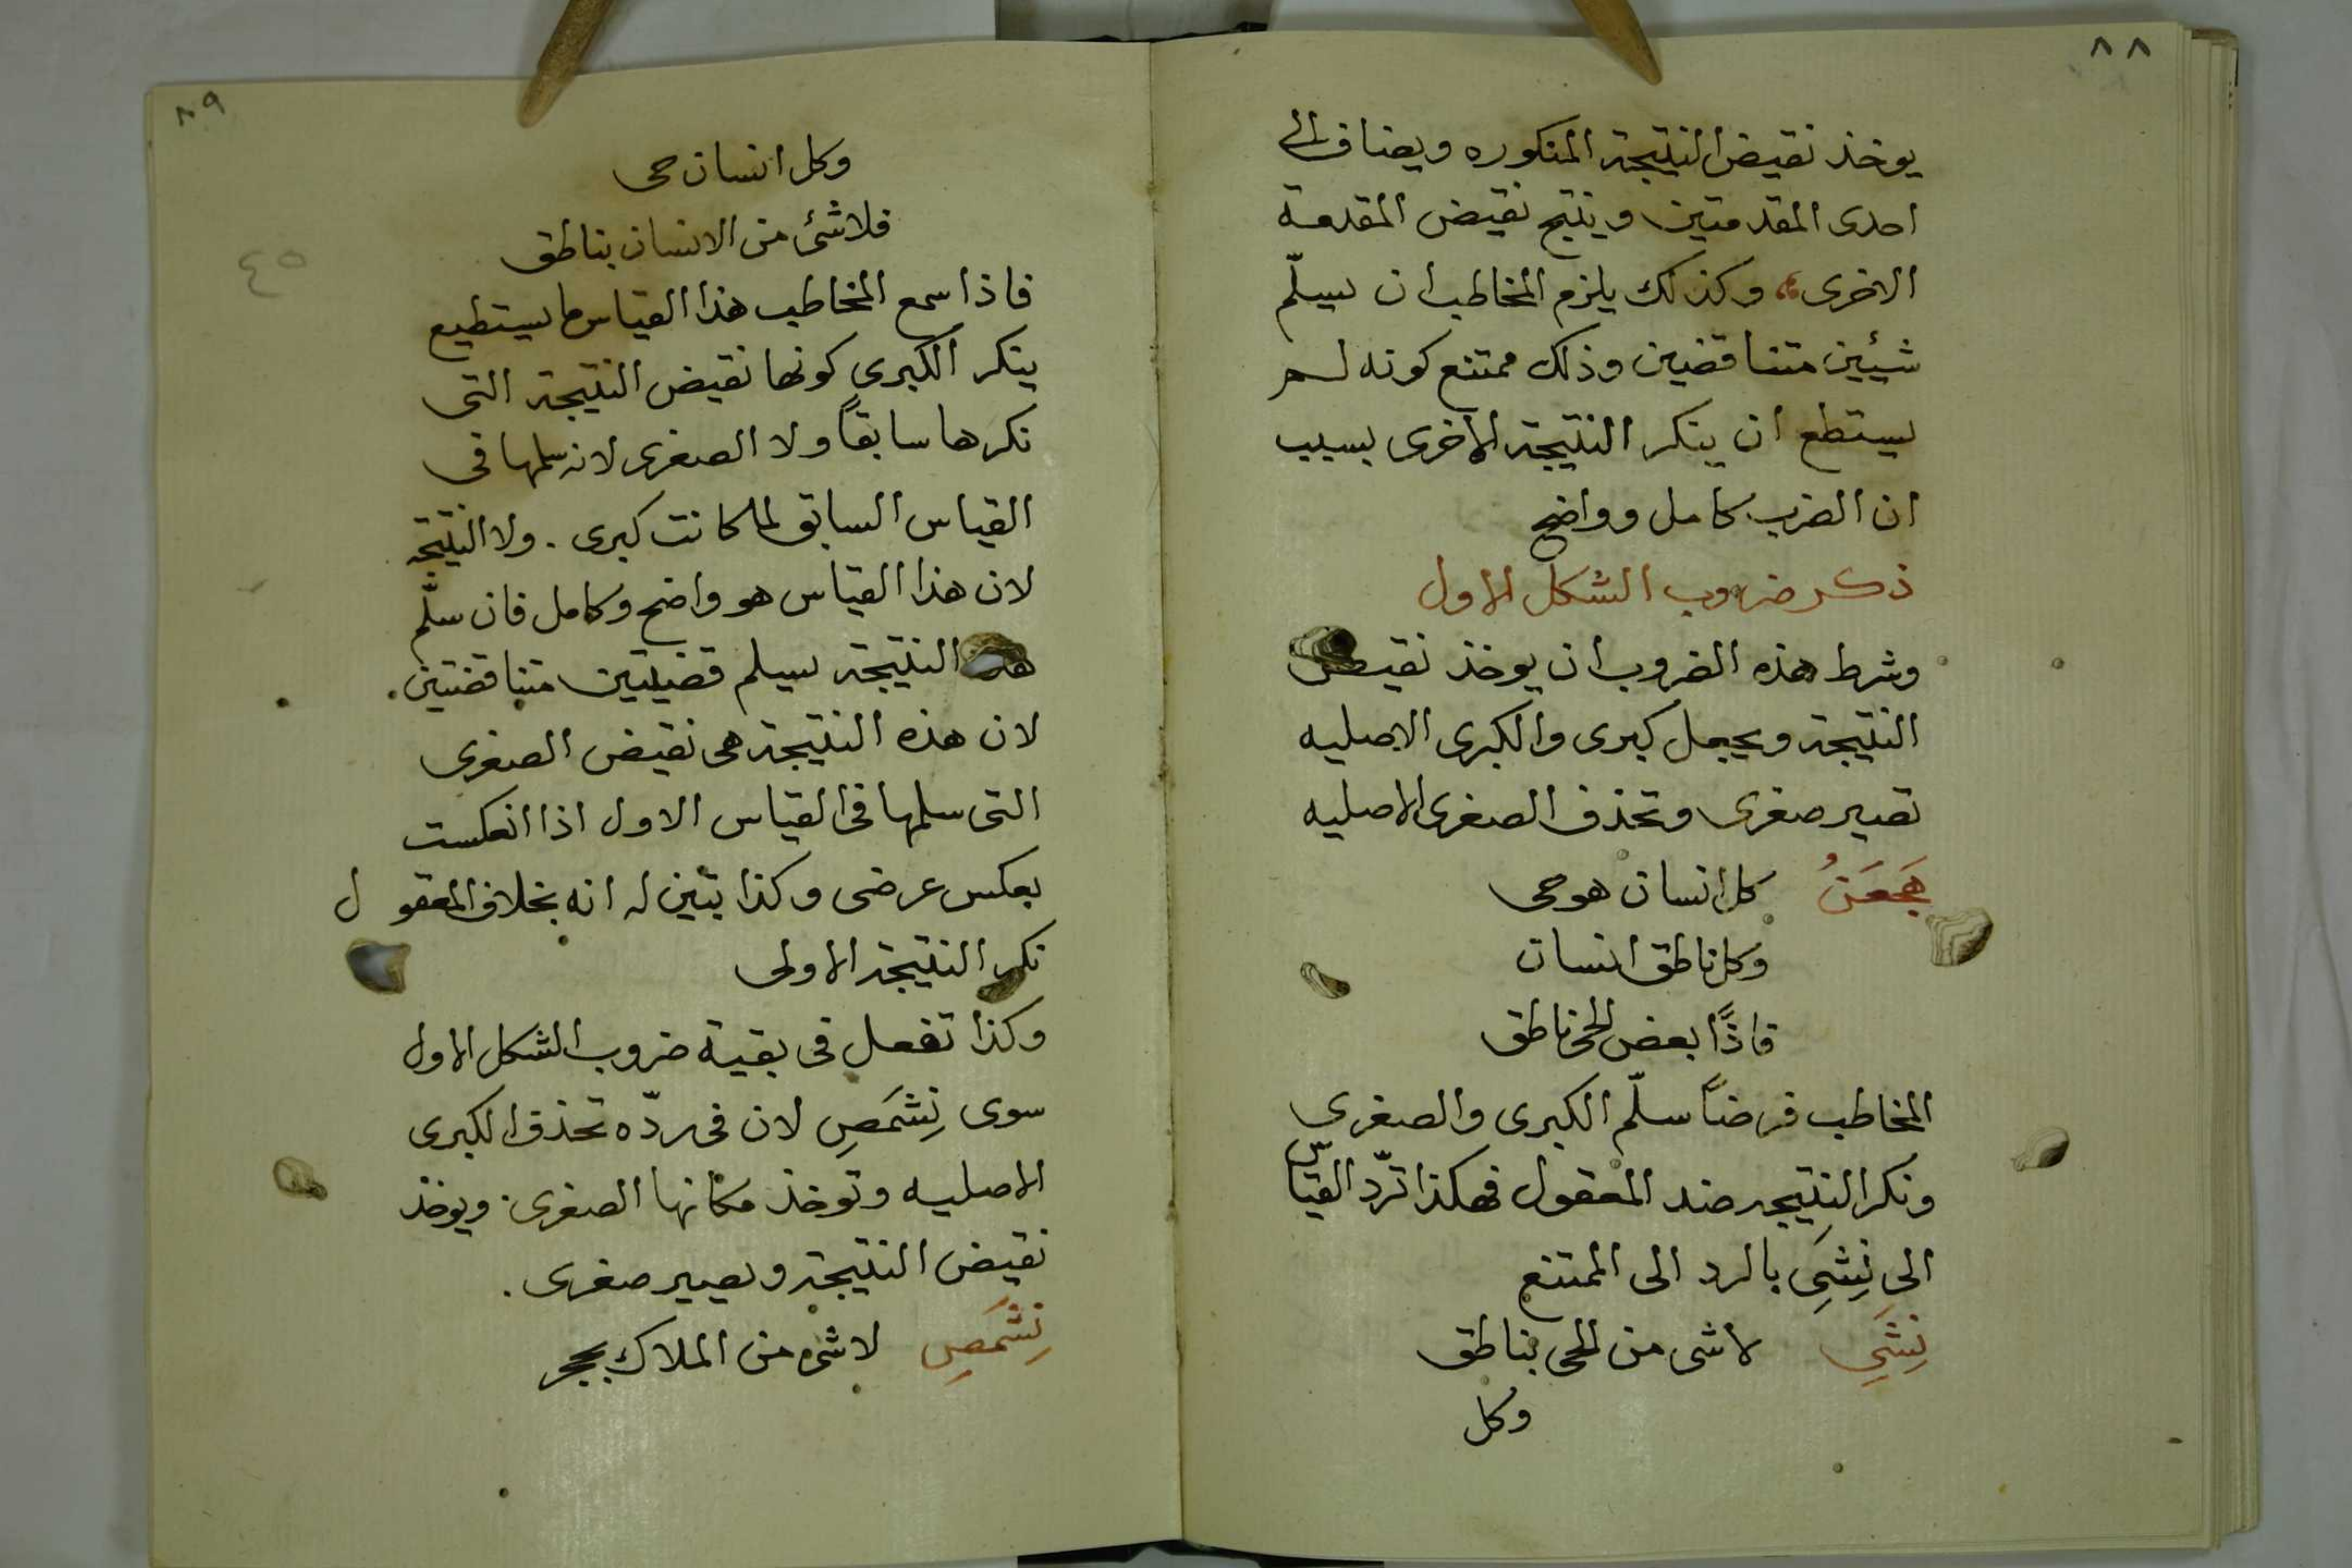 ٨٨
يوخذ نقيض النتيجة المنكوره ويضاف الى
احدى المقدمتين وينتج نقيض المقدمة
الاخرى، وكذلك يلزم المخاطب ان يسلّم
شيئين متناقضين وذلك ممتنع كونه لم
يستطع ان ينكر النتيجة الاخرى بسبب
ان الضرب كامل وواضح
ذكر ضروب الشكل الاول
وشرط هذه الضروب ان يوخذ نقيض
النتيجة ويجعل كبرى والكبرى الاصليه
تصير صغرى وتحذف الصغرى الاصليه
كل انسان هو حى
وكل ناطق انسان
فاذًا بعض الحى ناطق
المخاطب فرضاً سلّم الكبرى والصغرى
ونكر النتيجه ضد المعقول فهكذا تردّ القياس
الى نِشَىِ بالرد الى الممتنع
نِشَىِ لا شى من الحى بناطق
وكل
٨٩
وكل انسان حى
فلا شئ من الانسان بناطق
٤٥
فاذا سمع المخاطب هذا القياس ما يستطيع
ينكر الكبرى كونها نقيض النتيجة التى
نكرها سابقاً ولا الصغرى لانه سلمها فى
القياس السابق لما كانت كبرى. ولا النتيجه
لان هذا القياس هو واضح وكامل فان سلّم
النتيجة يسلم قضيتين متناقضتين.
لان هذه النتيجة هى نقيض الصغرى
التى سلمها فى القياس الاول اذا انعكست
بعكس عرضى وكذا يتبين له انه بخلاف المعقول
نكر النتيجة الاولى
وكذا تفعل فى بقية ضروب الشكل الاول
سوى نِشَمَصِ لان فى ردّه تحذف الكبرى
الاصليه وتوخذ مكانها الصغرى. ويوخذ
نقيض النتيجة ويصير صغرى.
نِشَمَصِ لا شىء من الملاك بحجر